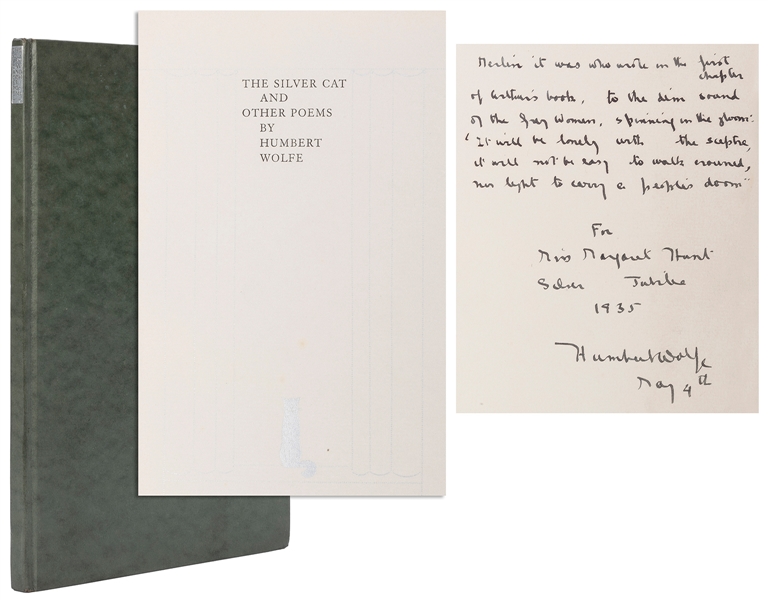 THE SILVER CAT
AND
OTHER POEMS
BY
HUMBERT
WOLFE
Merlin it was who wrote in the first
chapter
of Arthur's book, to the dim sound
of the Grey Women, spinning in the gloom:
"It will be lonely with the sceptre,
it will not be easy to walk crowned,
nor light to carry a people's doom"
For
Miss Margaret Hunt
Silver Jubilee
1935
Humbert Wolfe
May 4th